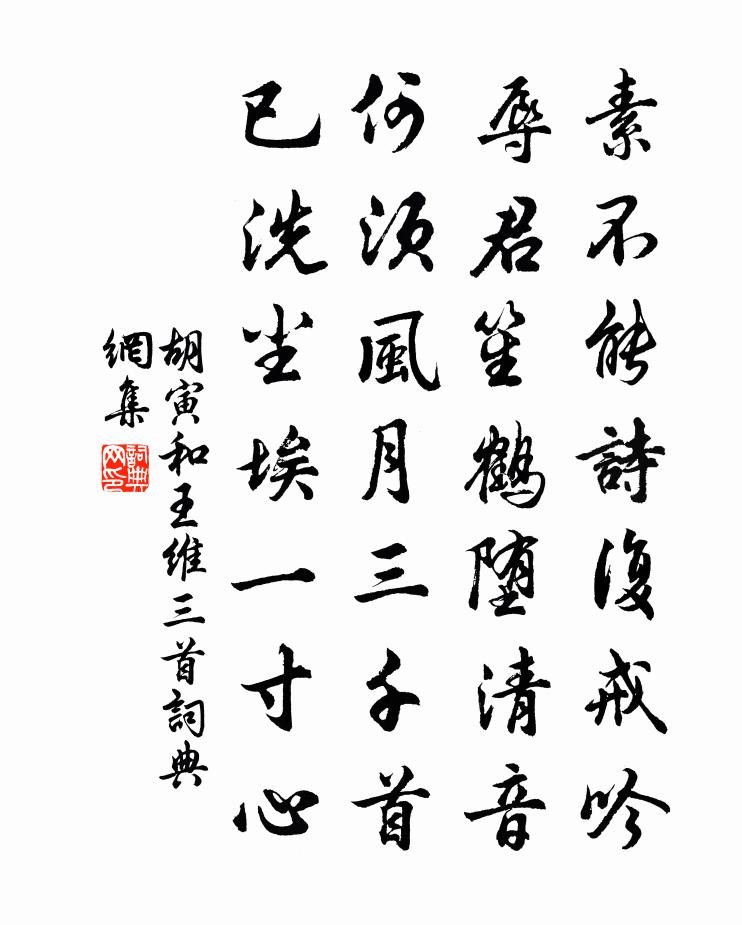 素不能詩復戒吟
辱君笙鶴堕清音
何須風月三千首
已洗尘埃一寸心
胡寅和王维三首詞典
網集
詞典
网印